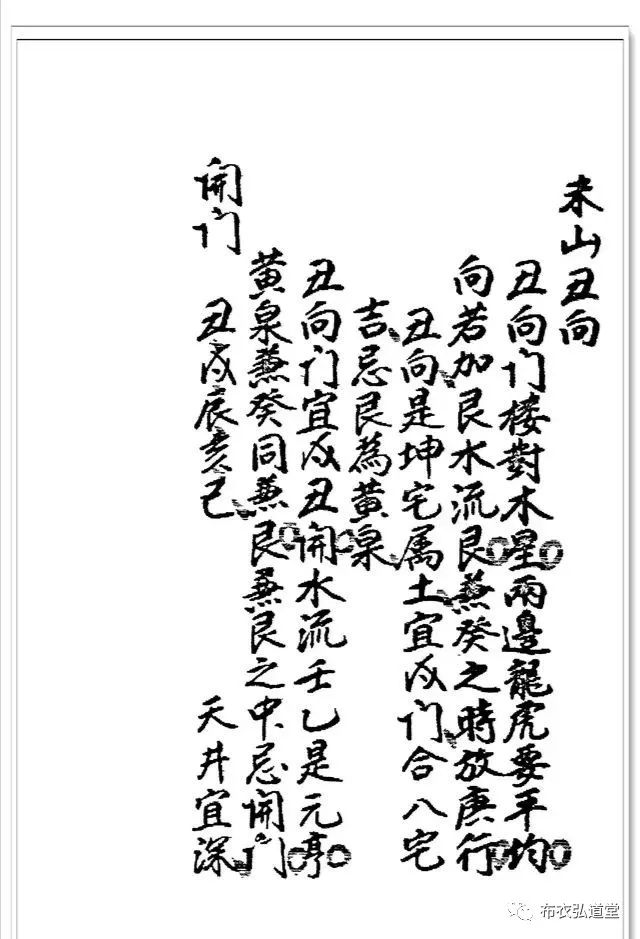 未山丑向
丑向门楼對木星○兩邊龍虎要平均○
向若加艮水流艮○兼癸之時放庚行○
丑向是坤宅属土宜戌门合八宅
吉忌艮為黃泉
丑向门宜戌丑開○水流壬乙是元亨○
黃泉兼癸同兼艮○兼艮之中忌開门○
開门 丑戌辰亥己 天井宜深
布衣弘道堂